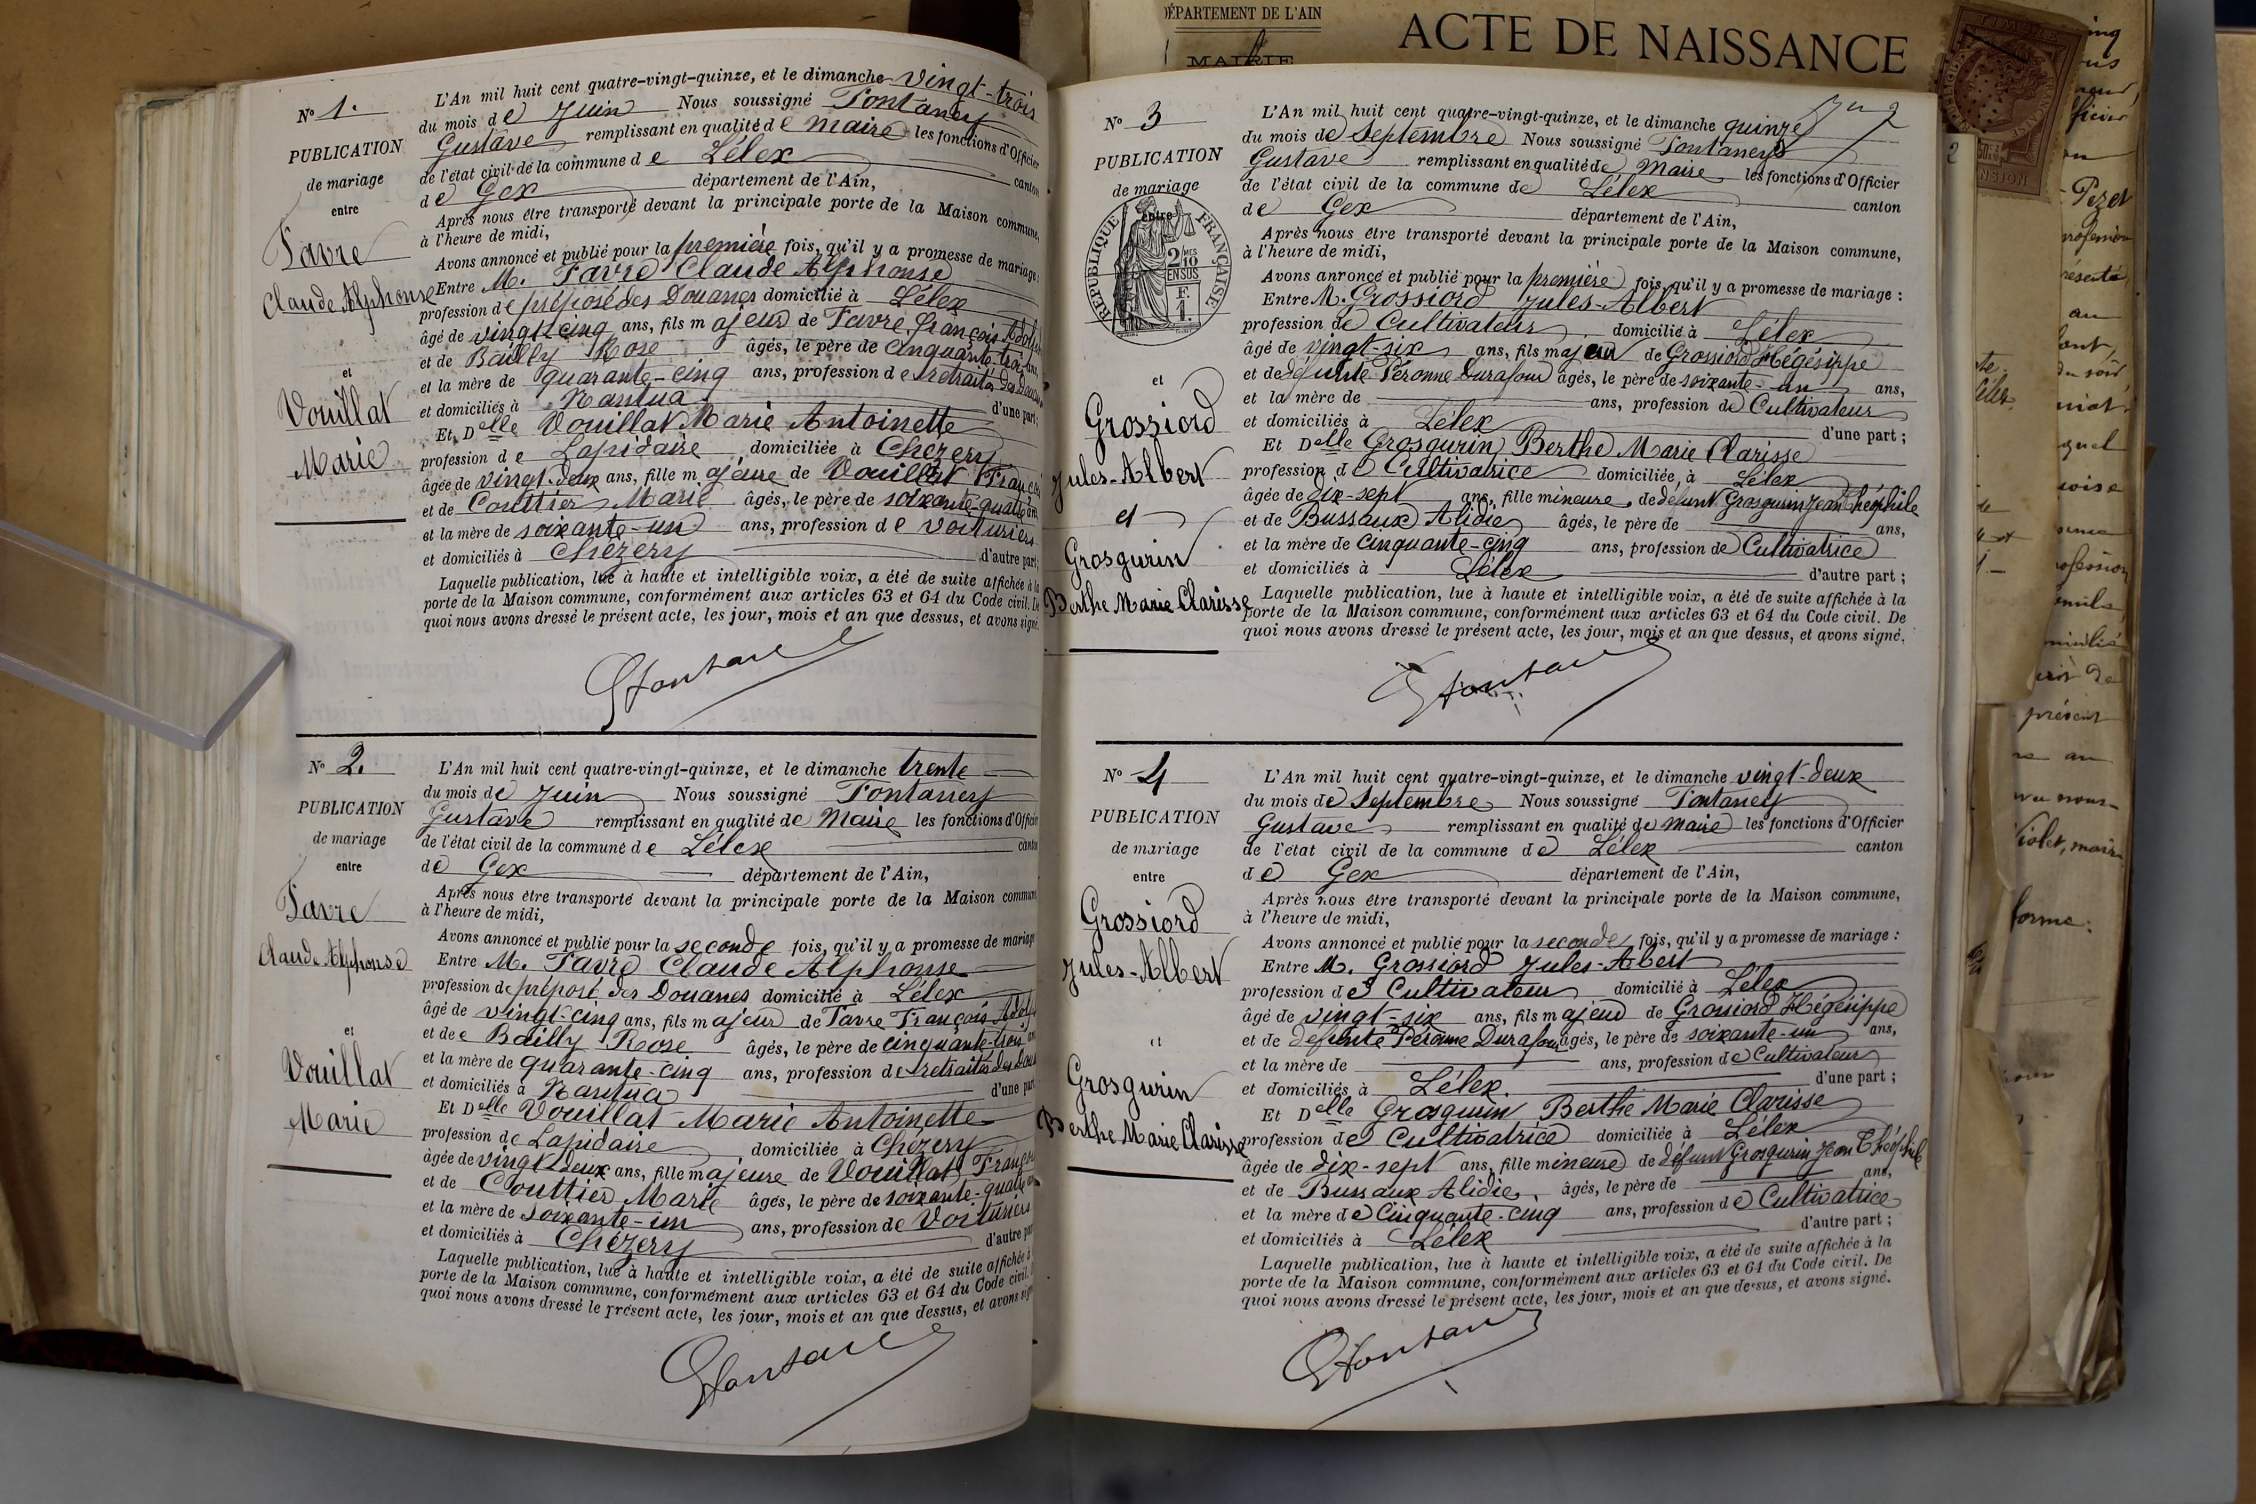 N° 1.
PUBLICATION
de mariage
entre
Favre
Claude Alphonse
et
Vouillat
Marie
L'An mil huit cent quatre-vingt-quinze, et le dimanche vingt-trois
du mois de Juin Nous soussigné Fontaney
Gustave remplissant en qualité de maire les fonctions d'Officier
de l'état civil de la commune de Lélex canton
de Gex département de l'Ain,
Après nous être transporté devant la principale porte de la Maison commune,
à l'heure de midi,
Avons annoncé et publié pour la première fois, qu'il y a promesse de mariage:
Entre M. Favre Claude Alphonse
profession de préposé des Douanes domicilié à Lélex
âgé de vingt-cinq ans, fils majeur de Favre François
et de Bailly Rose âgés, le père de cinquante-trois ans,
et la mère de quarante-cinq ans, profession de retraités des
et domiciliés à Nantua d'une part;
Et Delle Vouillat Marie Antoinette
profession de Lapidaire domiciliée à Chézery
âgée de vingt-deux ans, fille majeure de Vouillat
et de Couttier Marie âgés, le père de soixante-quatre ans
et la mère de soixante-un ans, profession de Voituriers
et domiciliés à Chézery d'autre part;
Laquelle publication, lue à haute et intelligible voix, a été de suite affichée à la
porte de la Maison commune, conformément aux articles 63 et 64 du Code civil. De
quoi nous avons dressé le présent acte, les jour, mois et an que dessus, et avons signé.
N° 2.
PUBLICATION
de mariage
entre
Favre
Claude Alphonse
et
Vouillat
Marie
L'An mil huit cent quatre-vingt-quinze, et le dimanche trente
du mois de Juin Nous soussigné Fontaney
Gustave remplissant en qualité de Maire les fonctions d'Officier
de l'état civil de la commune de Lélex canton
de Gex département de l'Ain,
Après nous être transporté devant la principale porte de la Maison commune
à l'heure de midi,
Avons annoncé et publié pour la seconde fois, qu'il y a promesse de mariage
Entre M. Favre Claude Alphonse
profession de préposé des Douanes domicilié à Lélex
âgé de vingt-cinq ans, fils majeur de Favre François
et de Bailly Rose âgés, le père de cinquante-trois
et la mère de quarante-cinq ans, profession de retraités des
et domiciliés à Nantua d'une part
Et Delle Vouillat Marie Antoinette
profession de Lapidaire domiciliée à Chézery
âgée de vingt-deux ans, fille majeure de Vouillat
et de Couttier Marie âgés, le père de soixante-quatre
et la mère de soixante-un ans, profession de Voituriers
et domiciliés à Chézery d'autre part
Laquelle publication, lue à haute et intelligible voix, a été de suite affichée à
porte de la Maison commune, conformément aux articles 63 et 64 du Code civil.
quoi nous avons dressé le présent acte, les jour, mois et an que dessus, et avons
DÉPARTEMENT DE L'AIN
MAIRIE
ACTE DE NAISSANCE
N° 3
PUBLICATION
de mariage
entre
RÉPUBLIQUE FRANÇAISE
2 MES 10
EN SUS
F.
1.
et
Grossiord
Jules-Albert
et
Grosgurin
Berthe Marie Clarisse
L'An mil huit cent quatre-vingt-quinze, et le dimanche quinze
du mois de Septembre Nous soussigné Fontaney
Gustave remplissant en qualité de Maire les fonctions d'Officier
de l'état civil de la commune de Lélex canton
de Gex département de l'Ain,
Après nous être transporté devant la principale porte de la Maison commune,
à l'heure de midi,
Avons annoncé et publié pour la première fois, qu'il y a promesse de mariage :
Entre M. Grossiord Jules-Albert
profession de Cultivateur domicilié à Lélex
âgé de vingt-six ans, fils majeur de Grossiord Hégésippe
et de défunte Péronne Durafour âgés, le père de soixante-un ans,
et la mère de ans, profession de Cultivateur
et domiciliés à Lélex d'une part ;
Et Delle Grosgurin Berthe Marie Clarisse
profession de Cultivatrice domiciliée à Lélex
âgée de dix-sept ans, fille mineure de défunt Grosgurin Jean Théophile
et de Bussaux Alidie âgés, le père de ans,
et la mère de cinquante-cinq ans, profession de Cultivatrice
et domiciliés à Lélex d'autre part ;
Laquelle publication, lue à haute et intelligible voix, a été de suite affichée à la
porte de la Maison commune, conformément aux articles 63 et 64 du Code civil. De
quoi nous avons dressé le présent acte, les jour, mois et an que dessus, et avons signé.
N° 4
PUBLICATION
de mariage
entre
Grossiord
Jules-Albert
et
Grosgurin
Berthe Marie Clarisse
L'An mil huit cent quatre-vingt-quinze, et le dimanche vingt-deux
du mois de Septembre Nous soussigné Fontaney
Gustave remplissant en qualité de maire les fonctions d'Officier
de l'état civil de la commune de Lélex canton
de Gex département de l'Ain,
Après nous être transporté devant la principale porte de la Maison commune,
à l'heure de midi,
Avons annoncé et publié pour la seconde fois, qu'il y a promesse de mariage :
Entre M. Grossiord Jules-Albert
profession de Cultivateur domicilié à Lélex
âgé de vingt-six ans, fils majeur de Grossiord Hégésippe
et de défunte Péronne Durafour âgés, le père de soixante-un ans,
et la mère de ans, profession de Cultivateur
et domiciliés à Lélex. d'une part ;
Et Delle Grosgurin Berthe Marie Clarisse
profession de Cultivatrice domiciliée à Lélex
âgée de dix-sept ans, fille mineure de défunt Grosgurin Jean Théophile
et de Bussaux Alidie, âgés, le père de ans,
et la mère de Cinquante-cinq ans, profession de Cultivatrice
et domiciliés à Lélex d'autre part ;
Laquelle publication, lue à haute et intelligible voix, a été de suite affichée à la
porte de la Maison commune, conformément aux articles 63 et 64 du Code civil. De
quoi nous avons dressé le présent acte, les jour, mois et an que dessus, et avons signé.